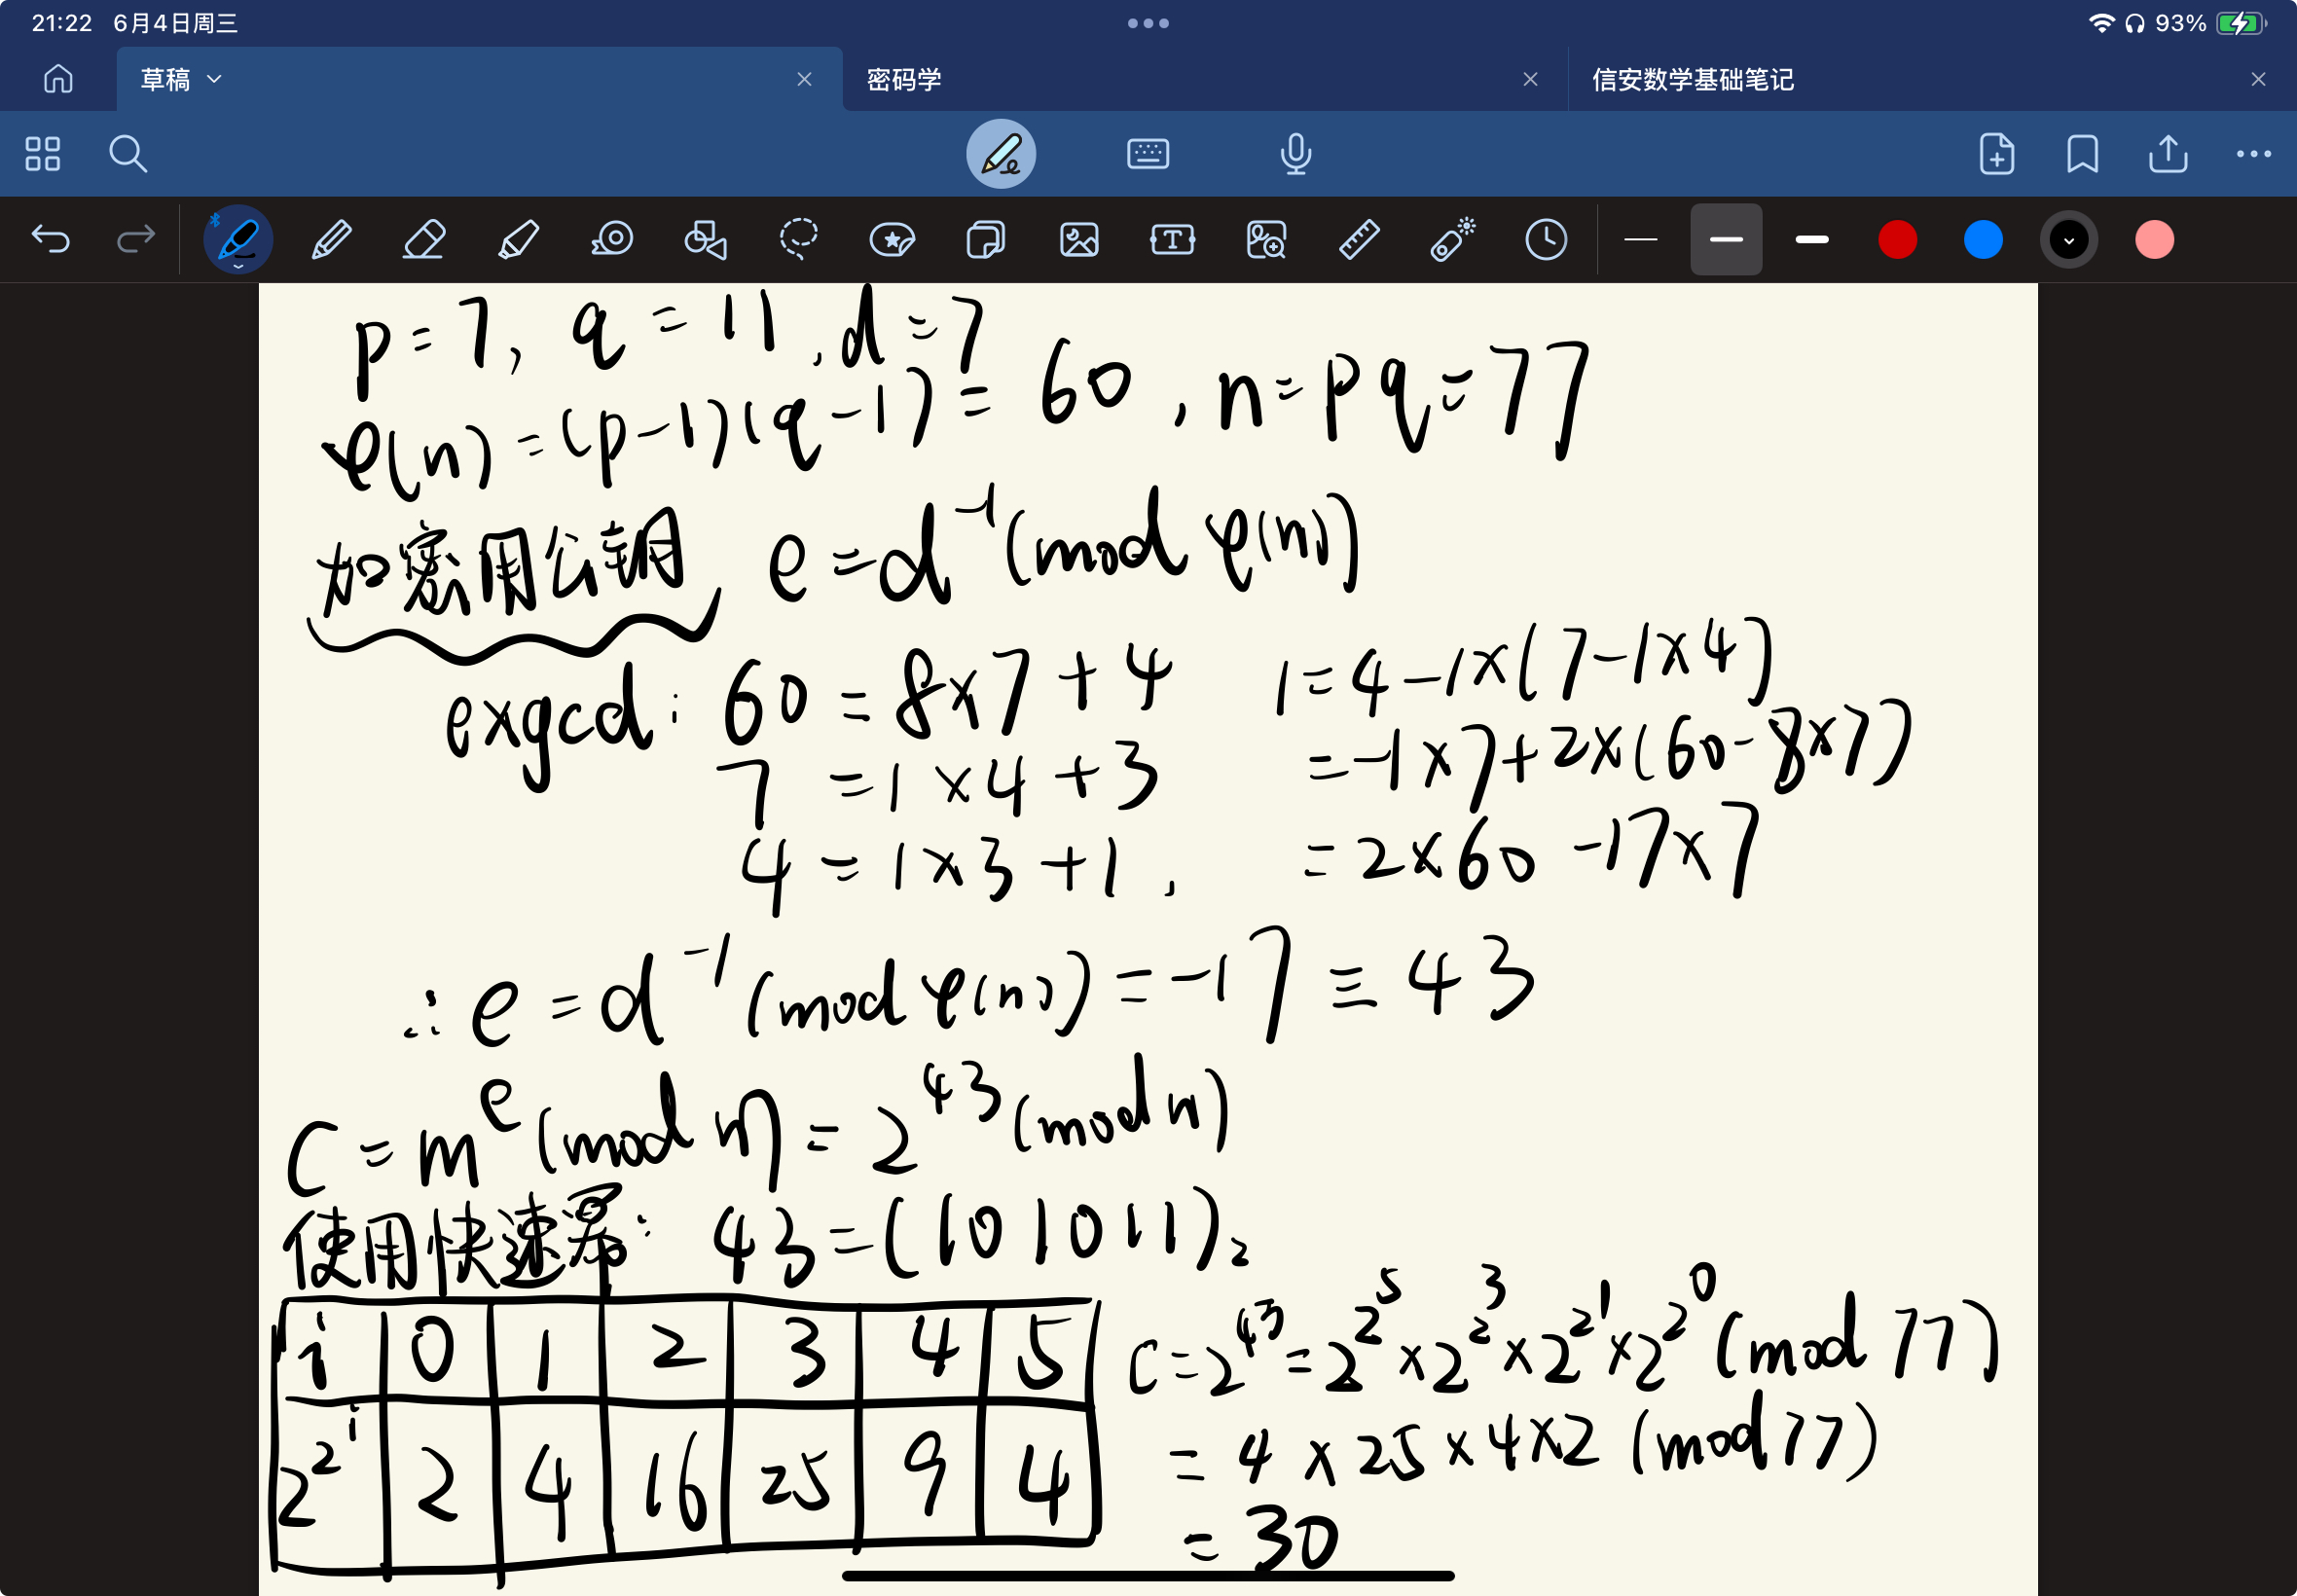 21:22 6月4日周三 93%
草稿 密码学 信安数学基础笔记
p=7, q=11, d=7
φ(n)=(p-1)(q-1)=60, n=pq=77
加密用公钥 e=d⁻¹(mod φ(n))
exgcd: 60=8×7+4
7=1×4+3
4=1×3+1,
1=4-1×(7-1×4)
=-1×7+2×(60-8×7)
=2×60-17×7
∴ e=d⁻¹(mod φ(n))=-17≡43
C=m^e(mod n)=2^43(mod n)
使用快速幂: 43=(101011)₂
i 0 1 2 3 4 5
2^2^i 2 4 16 25 9 4
C=2^43=2^2^5×2^2^3×2^2^1×2^2^0(mod 77)
=4×25×4×2 (mod 77)
=30